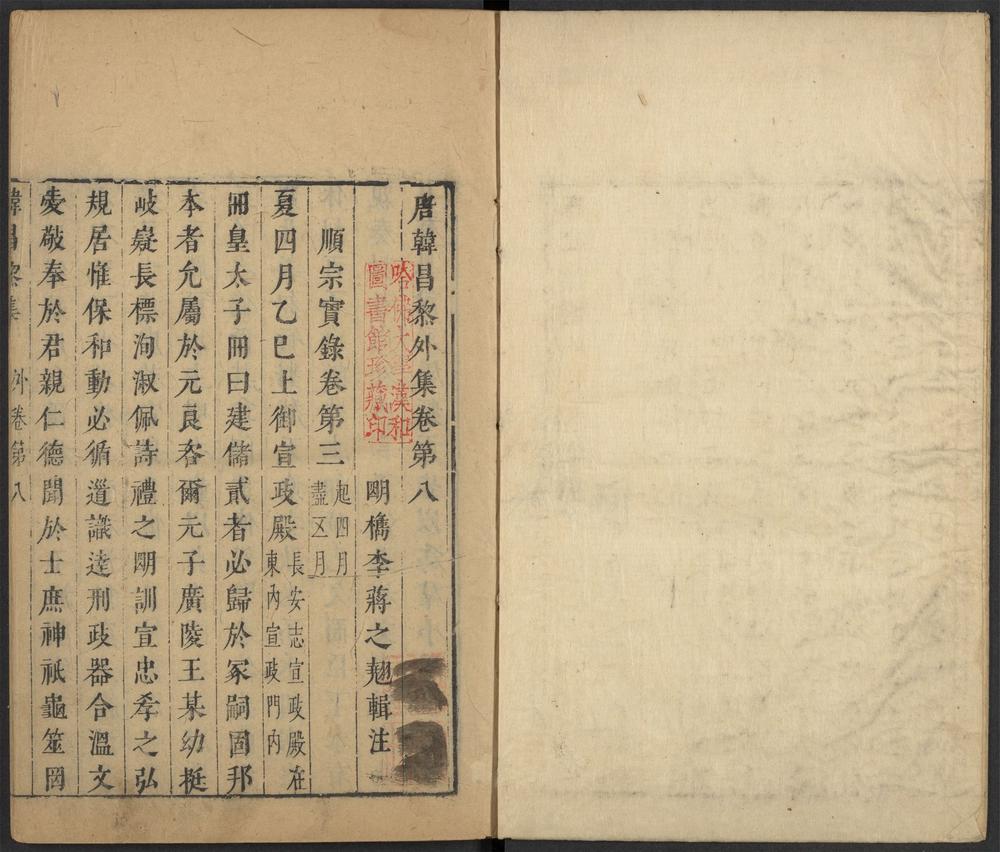 唐韓昌黎外集卷第八
明檇李蔣之翹輯注
哈佛大學漢和
圖書館珍藏印
順宗實錄卷第三 起四月盡五月
夏四月乙巳上御宣政殿 長安志宣政殿在東內宣政門內
冊皇太子冊曰建儲貳者必歸於冢嗣固邦
本者允屬於元良咨爾元子廣陵王某幼挺
岐嶷長標洵淑佩詩禮之明訓宣忠孝之弘
規居惟保和動必循道識達刑政器合溫文
愛敬奉於君親仁德聞於士庶神祇龜筮罔
韓昌黎集 外卷第八